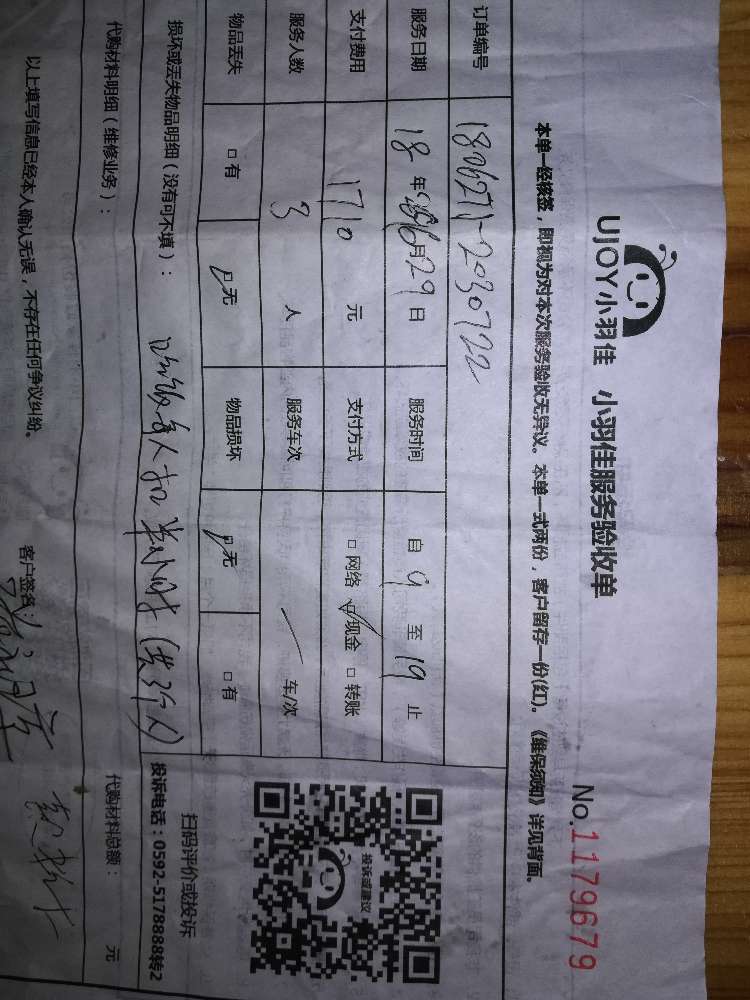 UJOY小羽佳 小羽佳服务验收单
No.1179679
本单一经核签，即视为对本次服务验收无异议。本单一式两份，客户留存一份(红)。《维保须知》详见背面。
订单编号
服务日期 18 年 月 29 日 服务时间 自 9 至 19 止
支付费用 1710 元 支付方式 □ 网络 □ 现金 □ 转账
服务人数 3 人 服务车次 一 车/次
物品丢失 □ 有 □ 无 物品损坏 □ 无 □ 有
损坏或丢失物品明细（没有可不填）：
投诉或建议
扫码评价或投诉
投诉电话：0592-5178888转2
代购材料明细（维修业务）： 代购材料总额： 元
以上填写信息已经本人确认无误，不存在任何争议纠纷。 客户签名：